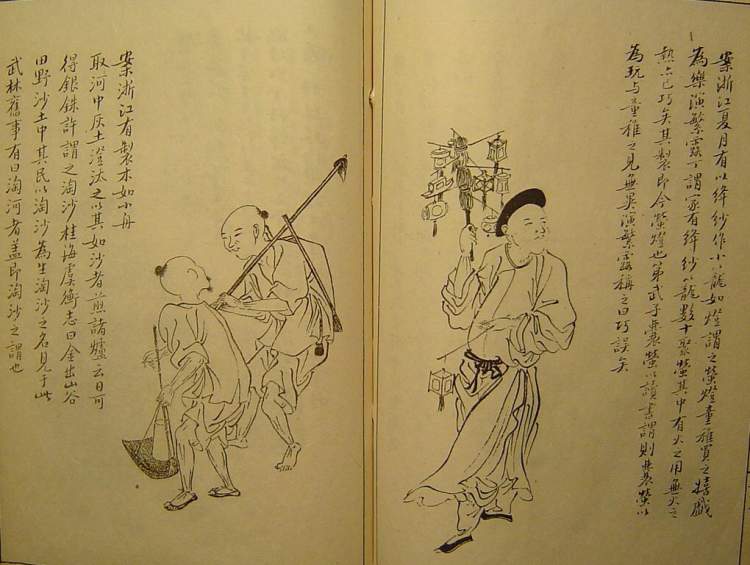 案浙江夏月有以絳紗作小籠如燈謂之螢燈童稚買之特戲
為樂演繁露丁謂家有絳紗籠數十聚螢其中有火之用無火之
熱亦已巧矣其製即今螢燈也第武子囊螢以讀書謂則囊螢以
為玩与童稚之見無異演繁露稱之曰巧誤矣
案浙江有製木如小舟
取河中灰土澄汰之以其如沙者煎諸爐云日可
得銀銖許謂之淘沙桂海虞衡志曰金出山谷
田野沙土中其民以淘沙為生淘沙之名見于此
武林舊事有曰淘河者蓋即淘沙之謂也